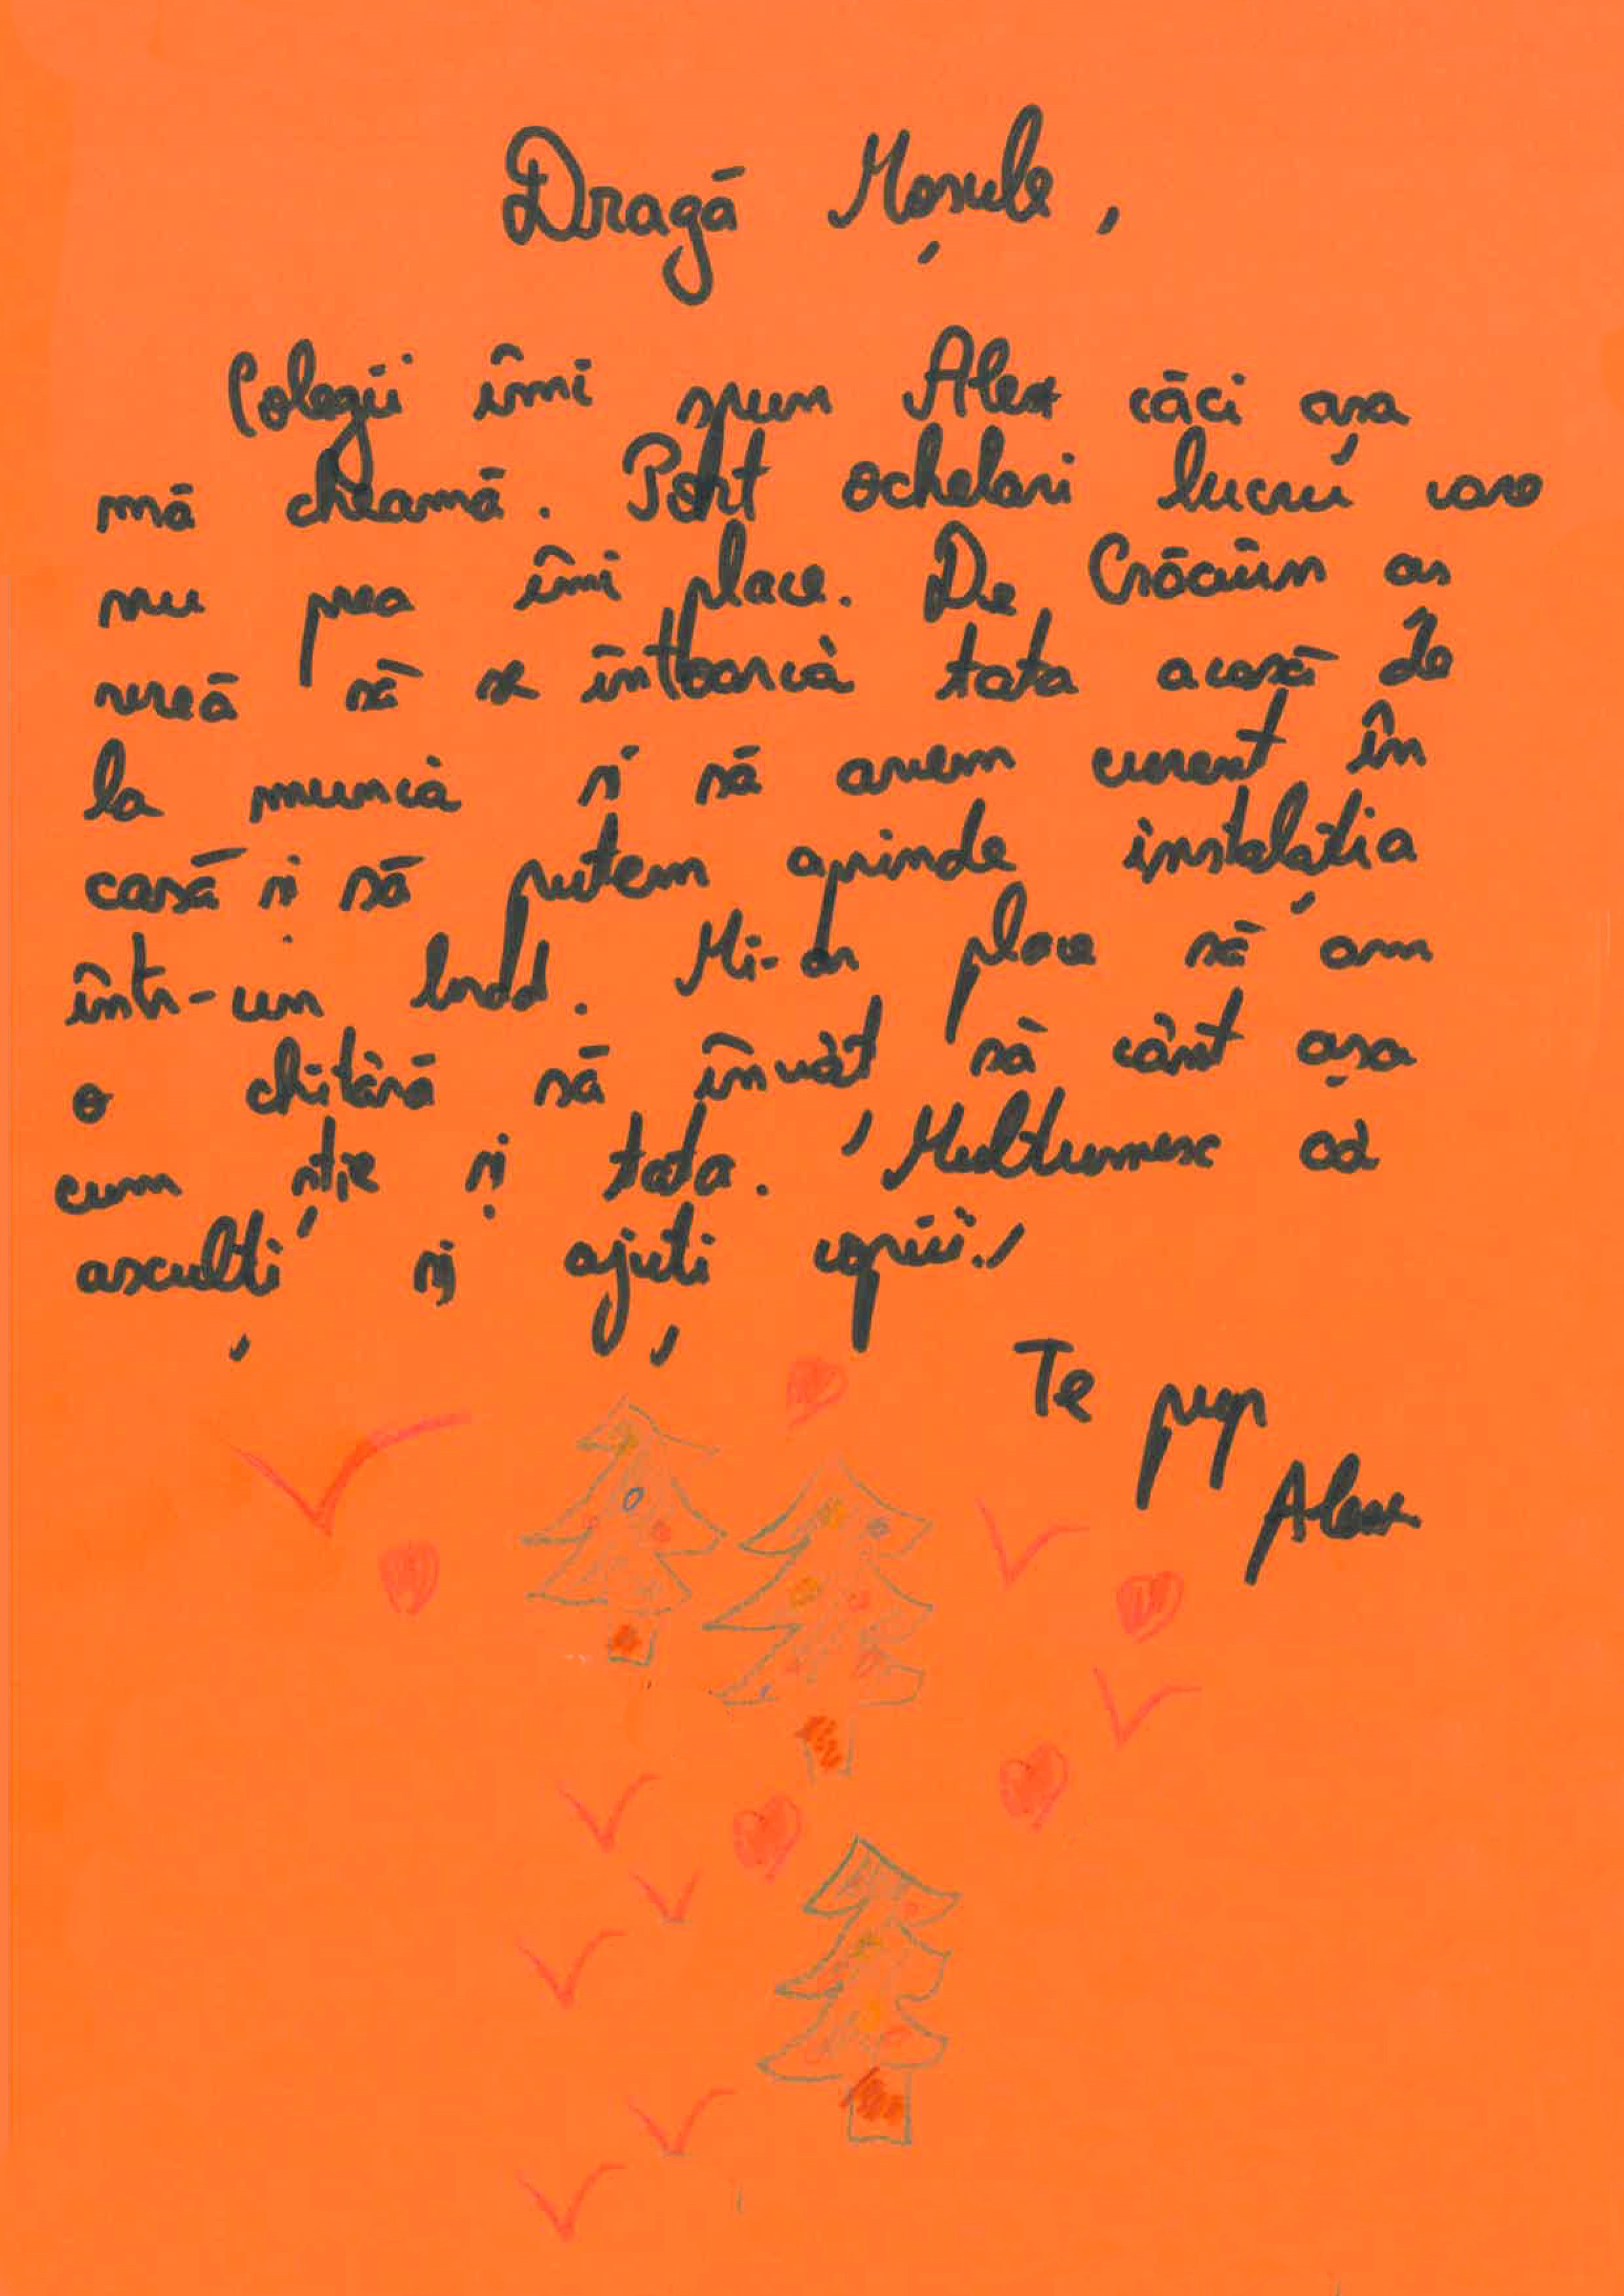 Dragă Moșule,
Colegii îmi spun Alex căci așa
mă cheamă. Port ochelari lucru care
nu prea îmi place. De Crăciun as
vreă să se întoarcă tata acasă de
la muncă si să avem curent în
casă si să putem aprinde instalația
într-un brad. Mi-ar place să am
o chitară să învăț să cânt așa
cum știe și tata. Multumesc că
asculți și ajuți copiii!
Te pup
Alex